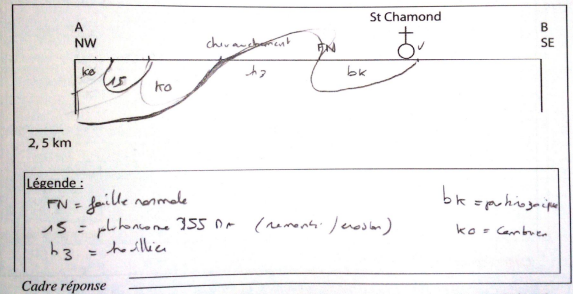 A
NW
St Chamond
B
SE
chevauchement
FN
ko
15
ko
h3
bk
2, 5 km
Légende :
FN = faille normale
15 = plutonisme 355 (remonté / érosion)
h3 = houiller
bk =
ko = Cambrien
Cadre réponse